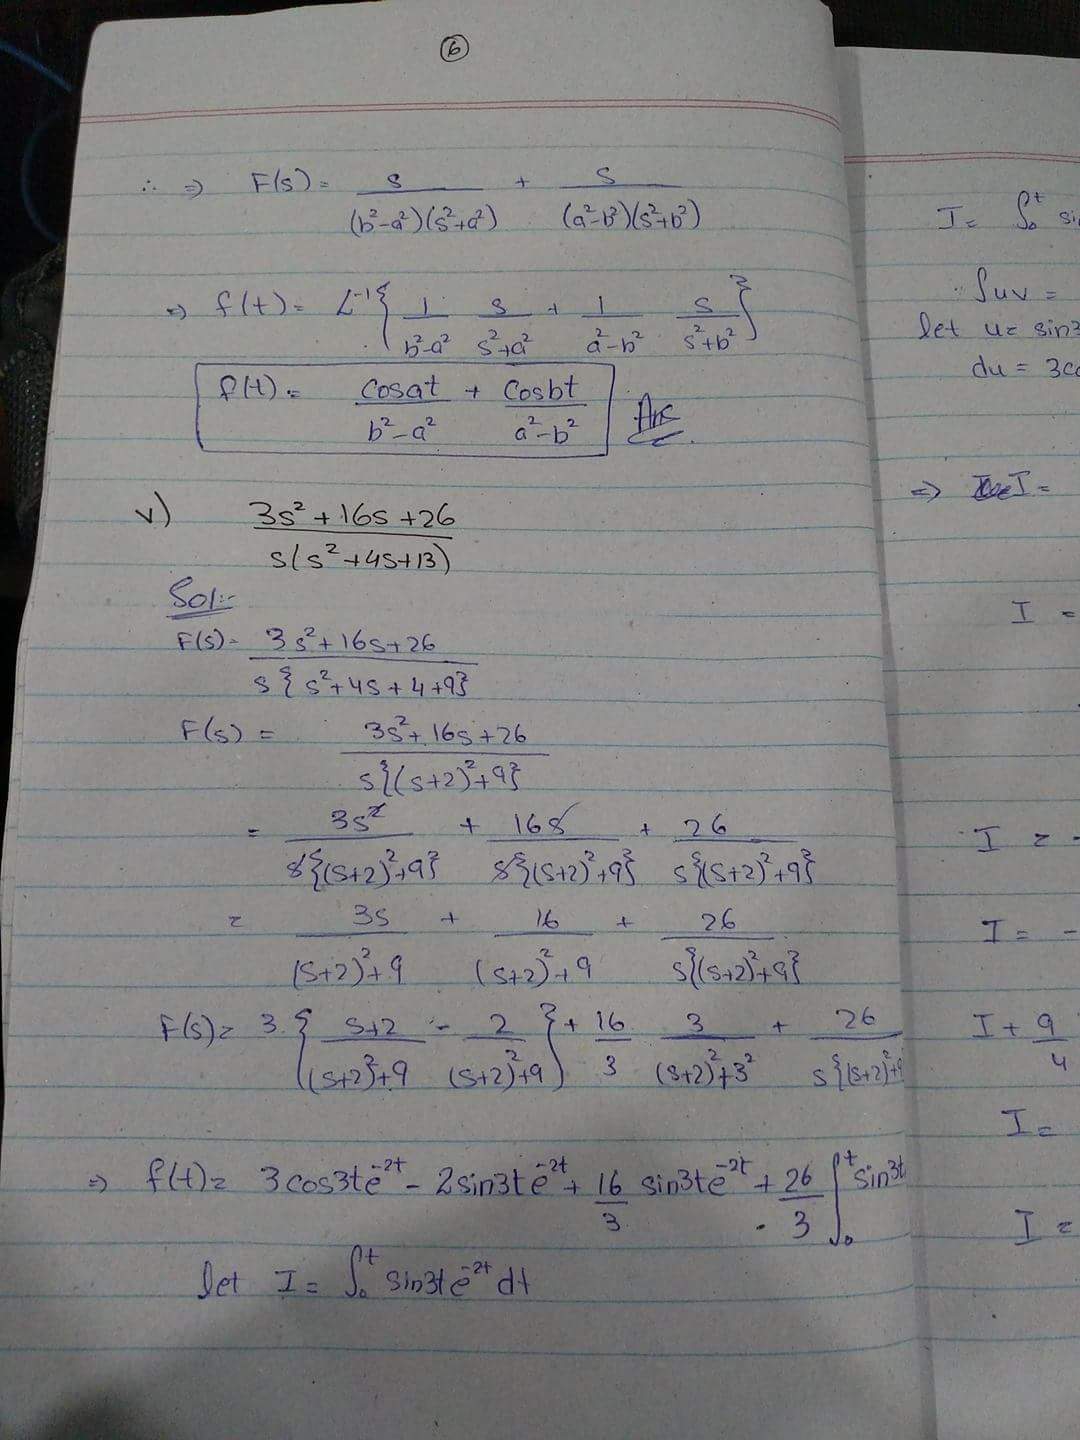 6
∴ ⇒ F(s) = s/((b²-a²)(s²+a²)) + s/((a²-b²)(s²+b²))
⇒ f(t) = L⁻¹{1/(b²-a²) s/(s²+a²) + 1/(a²-b²) s/(s²+b²)}
f(t) = Cosat/(b²-a²) + Cosbt/(a²-b²) Ans
v) (3s²+16s+26)/(s(s²+4s+13))
Sol:-
F(s) = (3s²+16s+26)/(s{s²+4s+4+9})
F(s) = (3s²+16s+26)/(s{(s+2)²+9})
= 3s²/(s{(s+2)²+9}) + 16s/(s{(s+2)²+9}) + 26/(s{(s+2)²+9})
= 3s/((s+2)²+9) + 16/((s+2)²+9) + 26/(s{(s+2)²+9})
F(s) = 3.{(s+2)/((s+2)²+9) - 2/((s+2)²+9)} + 16/3 3/((s+2)²+3²) + 26/(s{(s+2)²+9
⇒ f(t) = 3cos3te⁻²ᵗ - 2sin3te⁻²ᵗ + 16/3 sin3te⁻²ᵗ + 26/3 ∫₀ᵗ sin3t
let I = ∫₀ᵗ sin3te⁻²ᵗ dt
I = ∫₀ᵗ si
∵ ∫uv =
let u = sin3
du = 3co
⇒ I =
I =
I = -
I = -
I + 9/4
I =
I =